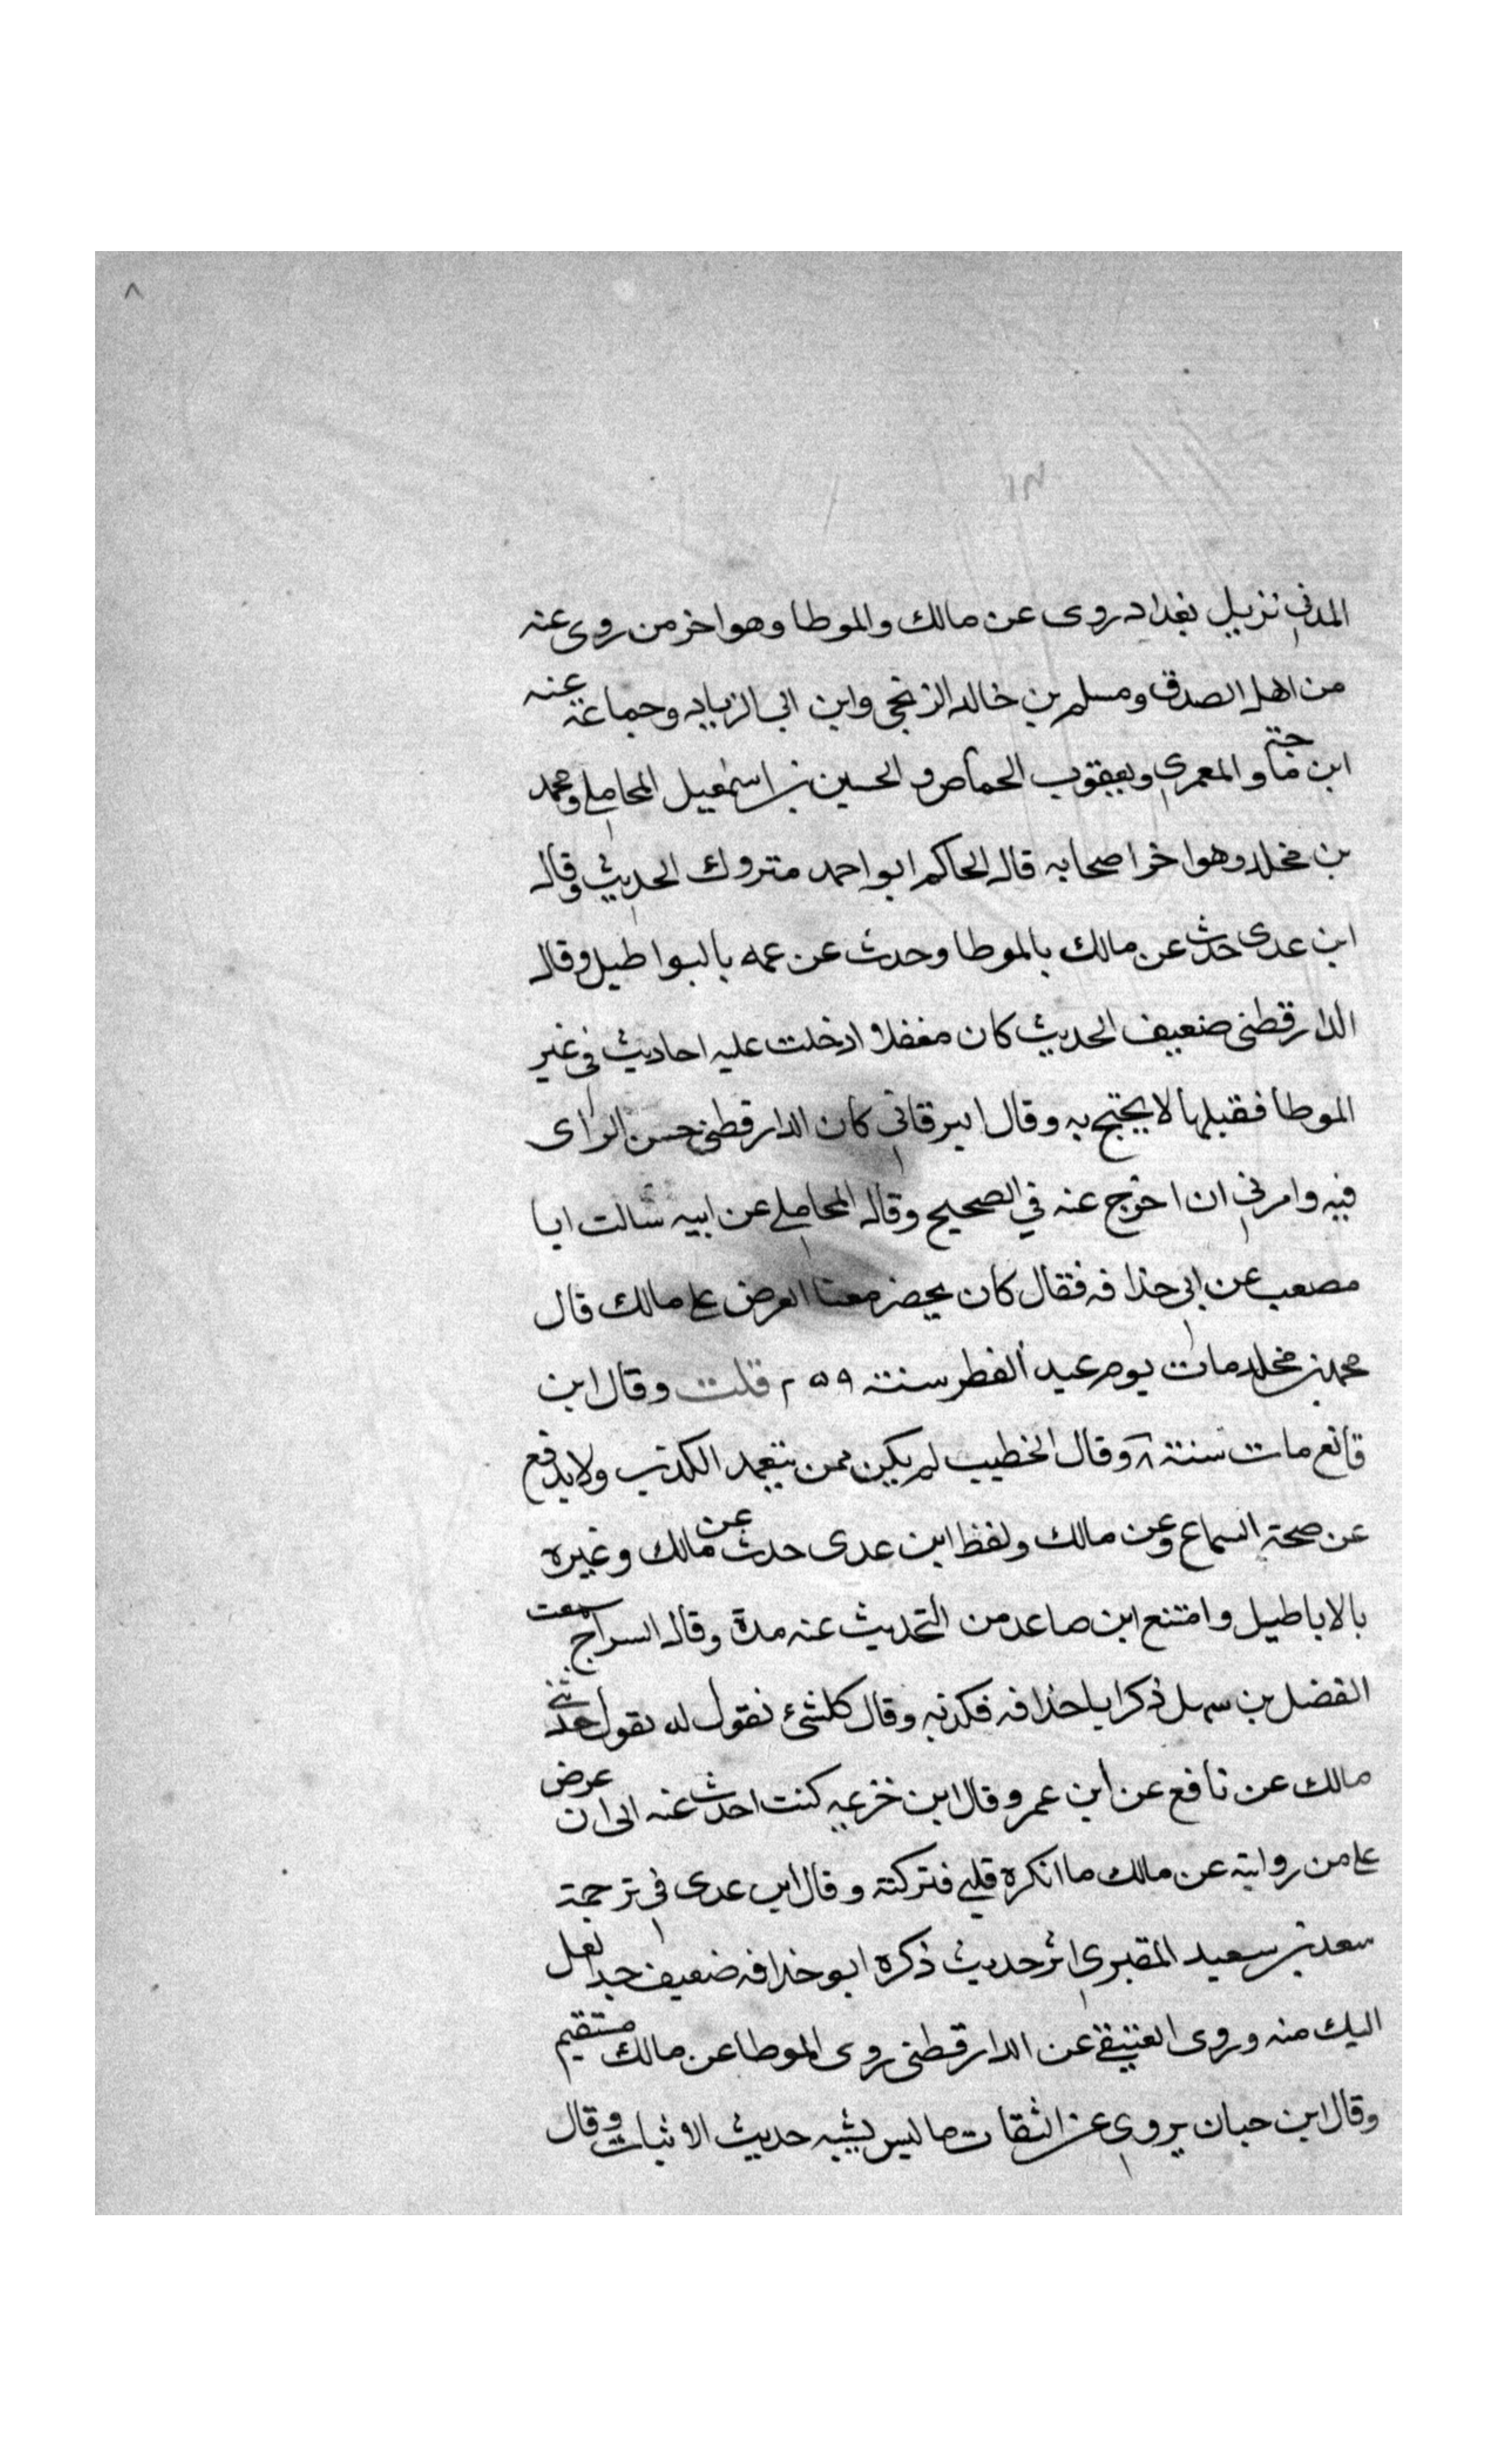 ٨
المدني نزيل بغداد روى عن مالك والموطا وهو اخر من روى عنه
من اهل الصدق ومسلم بن خالد الزنجي وابن ابي الزياد وجماعة عنه
ابن ماجة والمعمري ويعقوب الجصاص والحسين بن اسمعيل المحاملي ومحمد
بن مخلد وهو اخر اصحابه قال الحاكم ابو احمد متروك الحديث وقال
ابن عدى حدث عن مالك بالموطا وحدث عن عمه بالبواطيل وقال
الدارقطنى ضعيف الحديث كان مغفلا ادخلت عليه احاديث في غير
الموطا فقبلها لا يحتج به وقال البرقاني كان الدارقطني حسن الراى
فيه وامرني ان اخرج عنه في الصحيح وقال المحاملي عن ابيه سالت ابا
مصعب عن ابي حذافه فقال كان يحضر معنا العرض على مالك قال
محمد بن مخلد مات يوم عيد الفطر سنة ٢٥٩ قلت وقال ابن
قانع مات سنة ٨ وقال الخطيب لم يكن ممن يتعمد الكذب ولا يدفع
عن صحة السماع وعن مالك ولفظ ابن عدى حدث عن مالك وغيره
بالاباطيل وامتنع ابن صاعد من التحديث عنه مدة وقال السراج سمعت
الفضل بن سهل ذكر ابا حذافه فكذبه وقال كلشئ نقول له يقول حدثني
مالك عن نافع عن ابن عمر وقال ابن خزيمه كنت احدث عنه الى ان عرض
على من روايته عن مالك ما انكره قلبي فتركته وقال ابن عدى في ترجمة
سعد بن سعيد المقبري اثر حديث ذكره ابو حذافه ضعيف جدا لعل
اليك منه وروى العتيقي عن الدارقطنى روى الموطا عن مالك مستقيم
وقال ابن حبان يروى عن الثقات ما ليس يشبه حديث الاثبات وقال